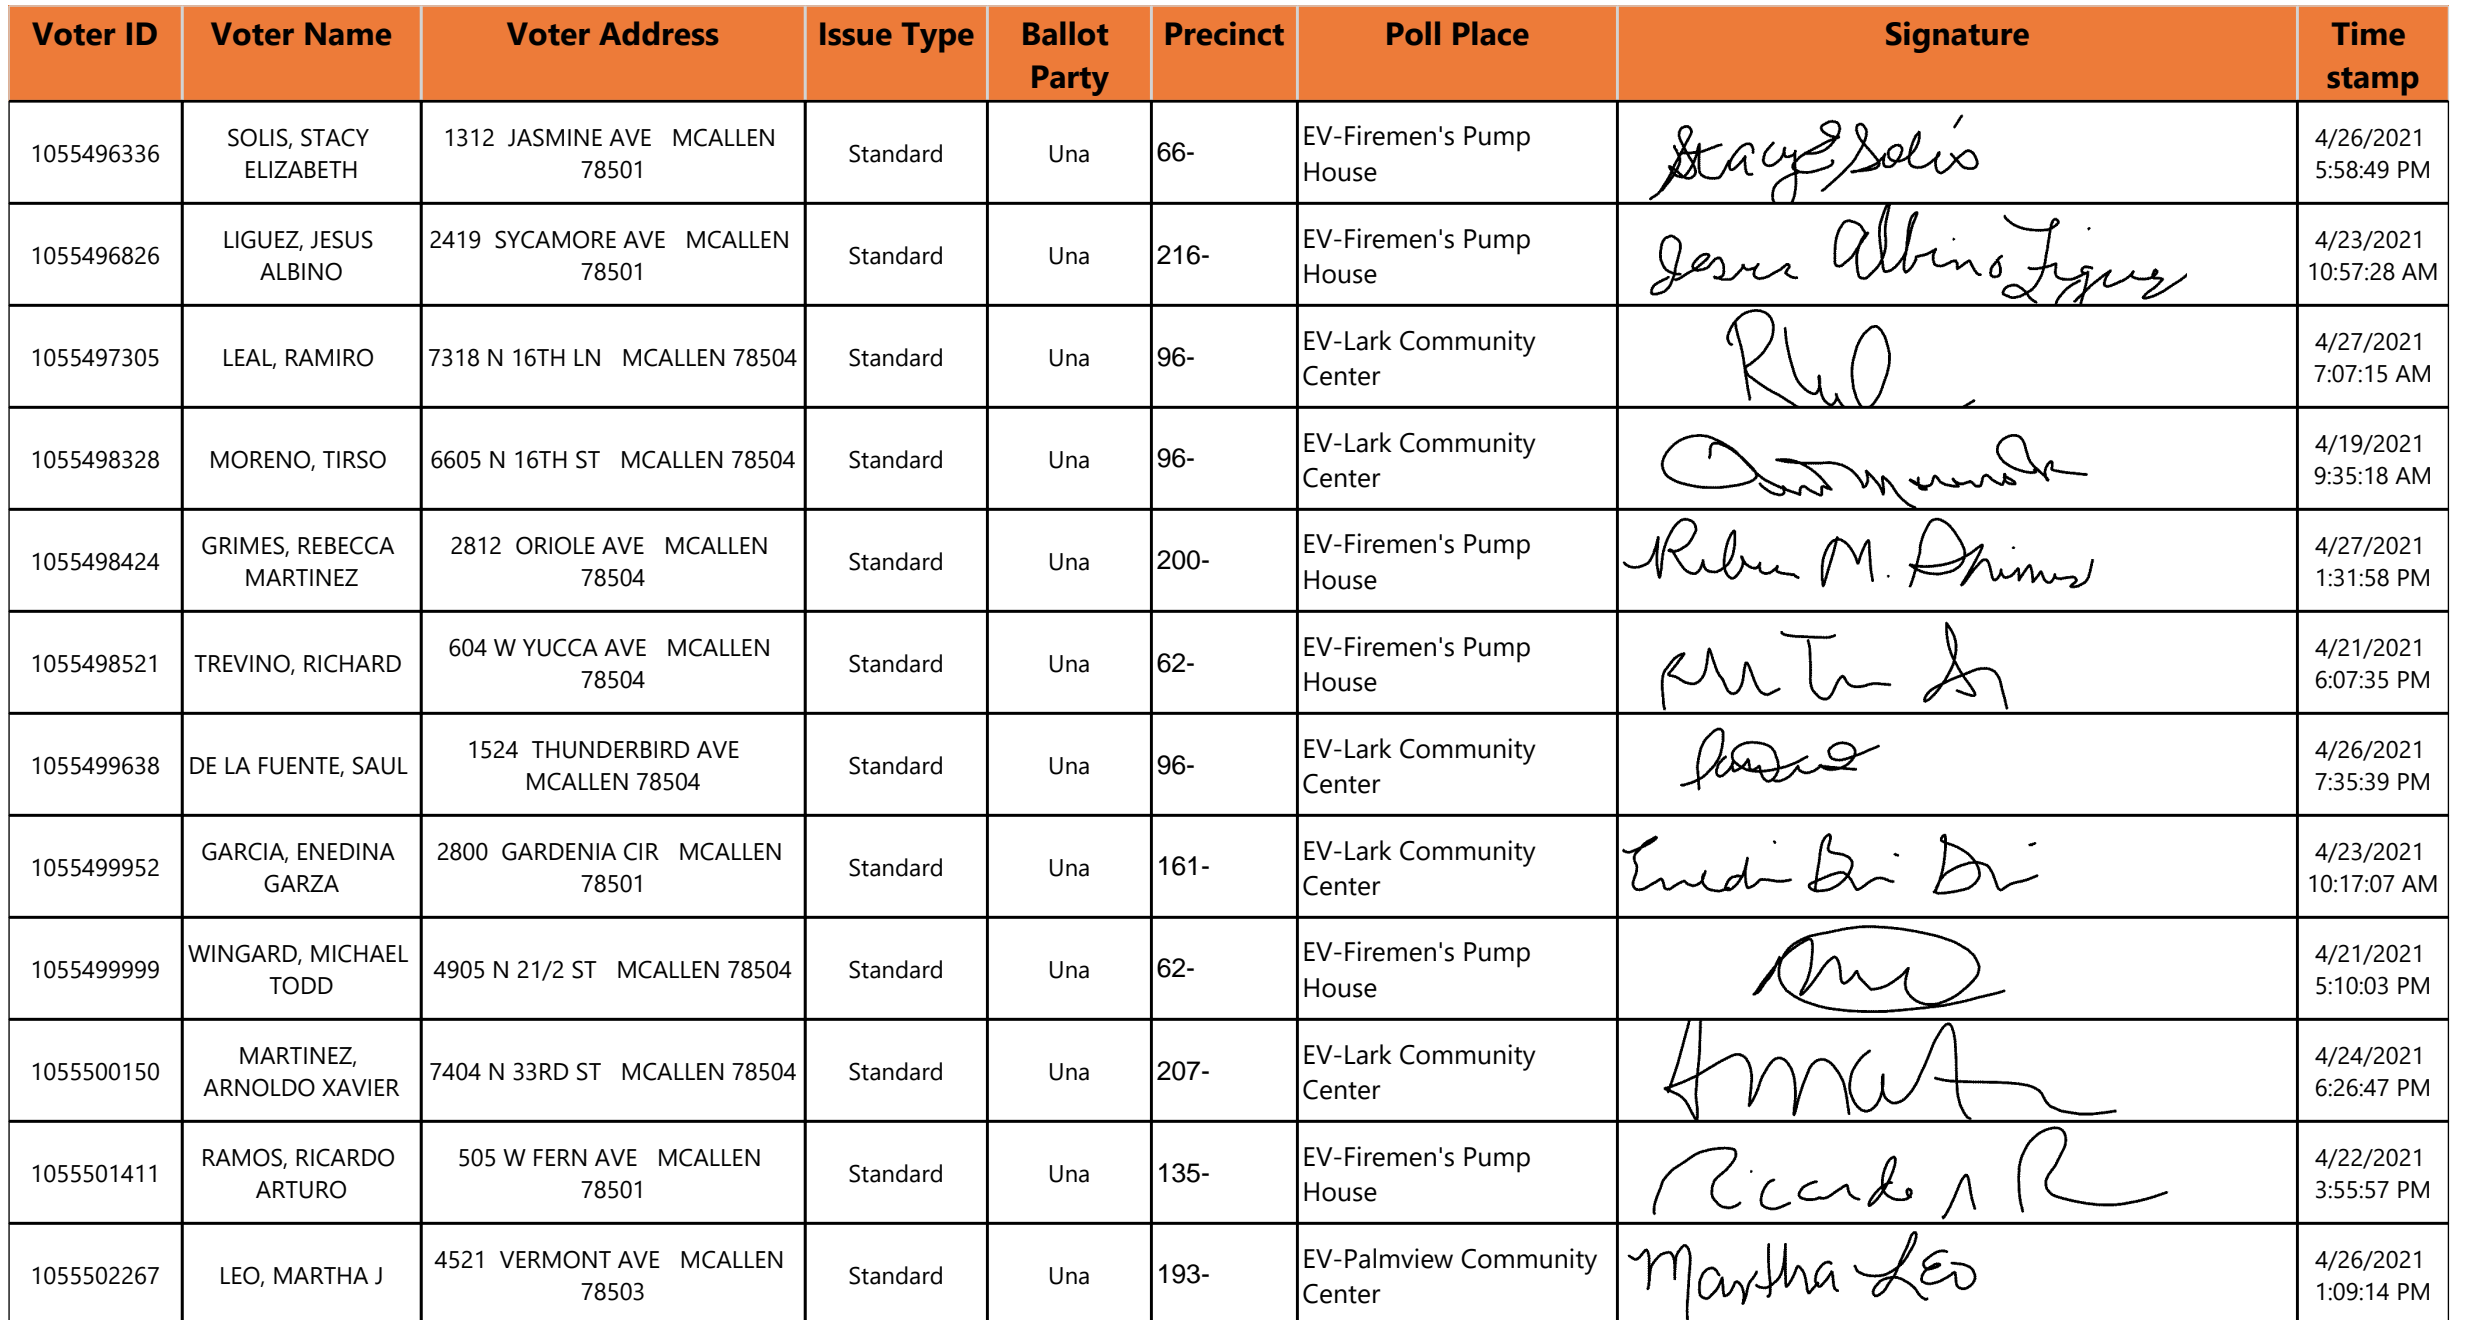 Voter ID Voter Name Voter Address Issue Type Ballot Party Precinct Poll Place Signature Time stamp
1055496336 SOLIS, STACY ELIZABETH 1312 JASMINE AVE MCALLEN 78501 Standard Una 66- EV-Firemen's Pump House Stacy E Solis 4/26/2021 5:58:49 PM
1055496826 LIGUEZ, JESUS ALBINO 2419 SYCAMORE AVE MCALLEN 78501 Standard Una 216- EV-Firemen's Pump House Jesus Albino Liguez 4/23/2021 10:57:28 AM
1055497305 LEAL, RAMIRO 7318 N 16TH LN MCALLEN 78504 Standard Una 96- EV-Lark Community Center 4/27/2021 7:07:15 AM
1055498328 MORENO, TIRSO 6605 N 16TH ST MCALLEN 78504 Standard Una 96- EV-Lark Community Center 4/19/2021 9:35:18 AM
1055498424 GRIMES, REBECCA MARTINEZ 2812 ORIOLE AVE MCALLEN 78504 Standard Una 200- EV-Firemen's Pump House M. Grimes 4/27/2021 1:31:58 PM
1055498521 TREVINO, RICHARD 604 W YUCCA AVE MCALLEN 78504 Standard Una 62- EV-Firemen's Pump House 4/21/2021 6:07:35 PM
1055499638 DE LA FUENTE, SAUL 1524 THUNDERBIRD AVE MCALLEN 78504 Standard Una 96- EV-Lark Community Center 4/26/2021 7:35:39 PM
1055499952 GARCIA, ENEDINA GARZA 2800 GARDENIA CIR MCALLEN 78501 Standard Una 161- EV-Lark Community Center 4/23/2021 10:17:07 AM
1055499999 WINGARD, MICHAEL TODD 4905 N 21/2 ST MCALLEN 78504 Standard Una 62- EV-Firemen's Pump House 4/21/2021 5:10:03 PM
1055500150 MARTINEZ, ARNOLDO XAVIER 7404 N 33RD ST MCALLEN 78504 Standard Una 207- EV-Lark Community Center 4/24/2021 6:26:47 PM
1055501411 RAMOS, RICARDO ARTURO 505 W FERN AVE MCALLEN 78501 Standard Una 135- EV-Firemen's Pump House Ricardo A R 4/22/2021 3:55:57 PM
1055502267 LEO, MARTHA J 4521 VERMONT AVE MCALLEN 78503 Standard Una 193- EV-Palmview Community Center Martha Leo 4/26/2021 1:09:14 PM